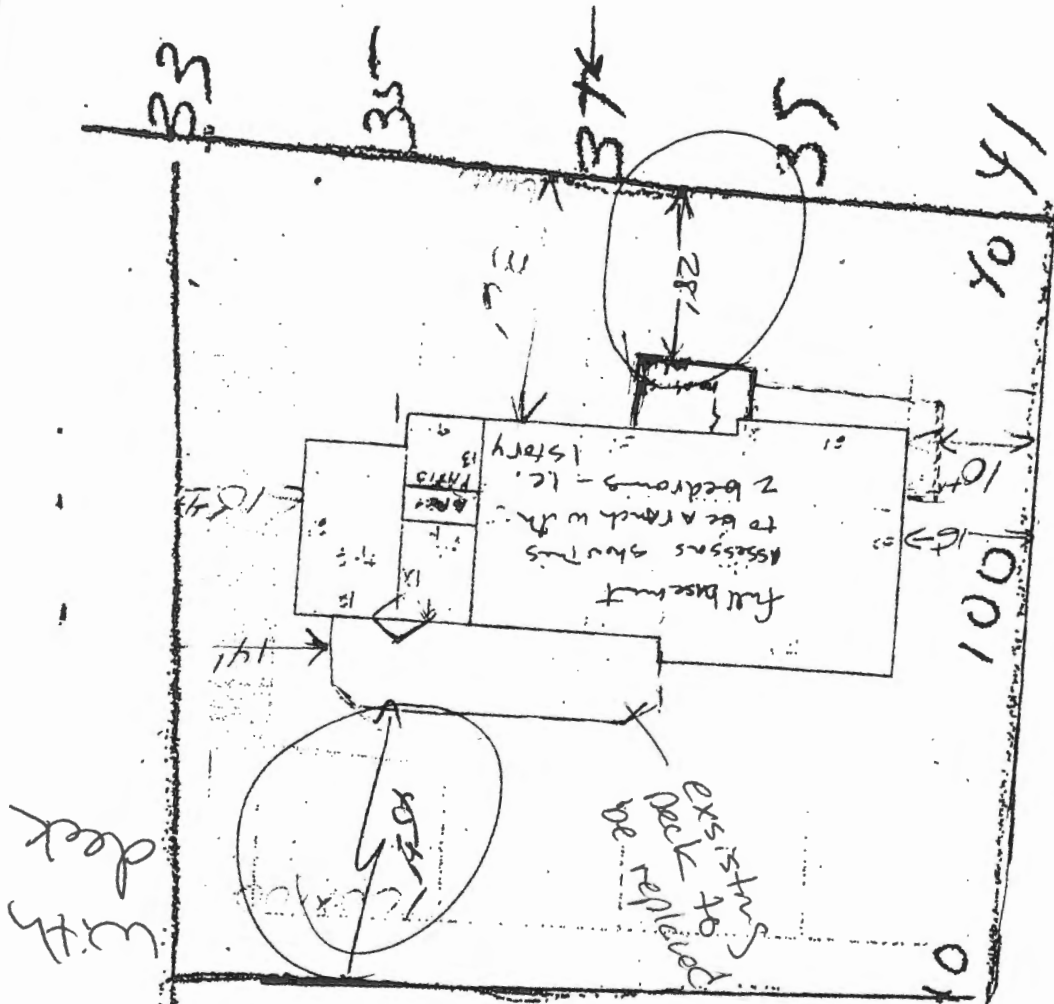 33
35
37
35
41
40
28'
10+
100
16
14'
full basement
assessors showing
to be a ranch with
2 bedrooms - i.e.
1 story
PATIO
13
9
12
exsisting
Deck to
be replaced
with
deck